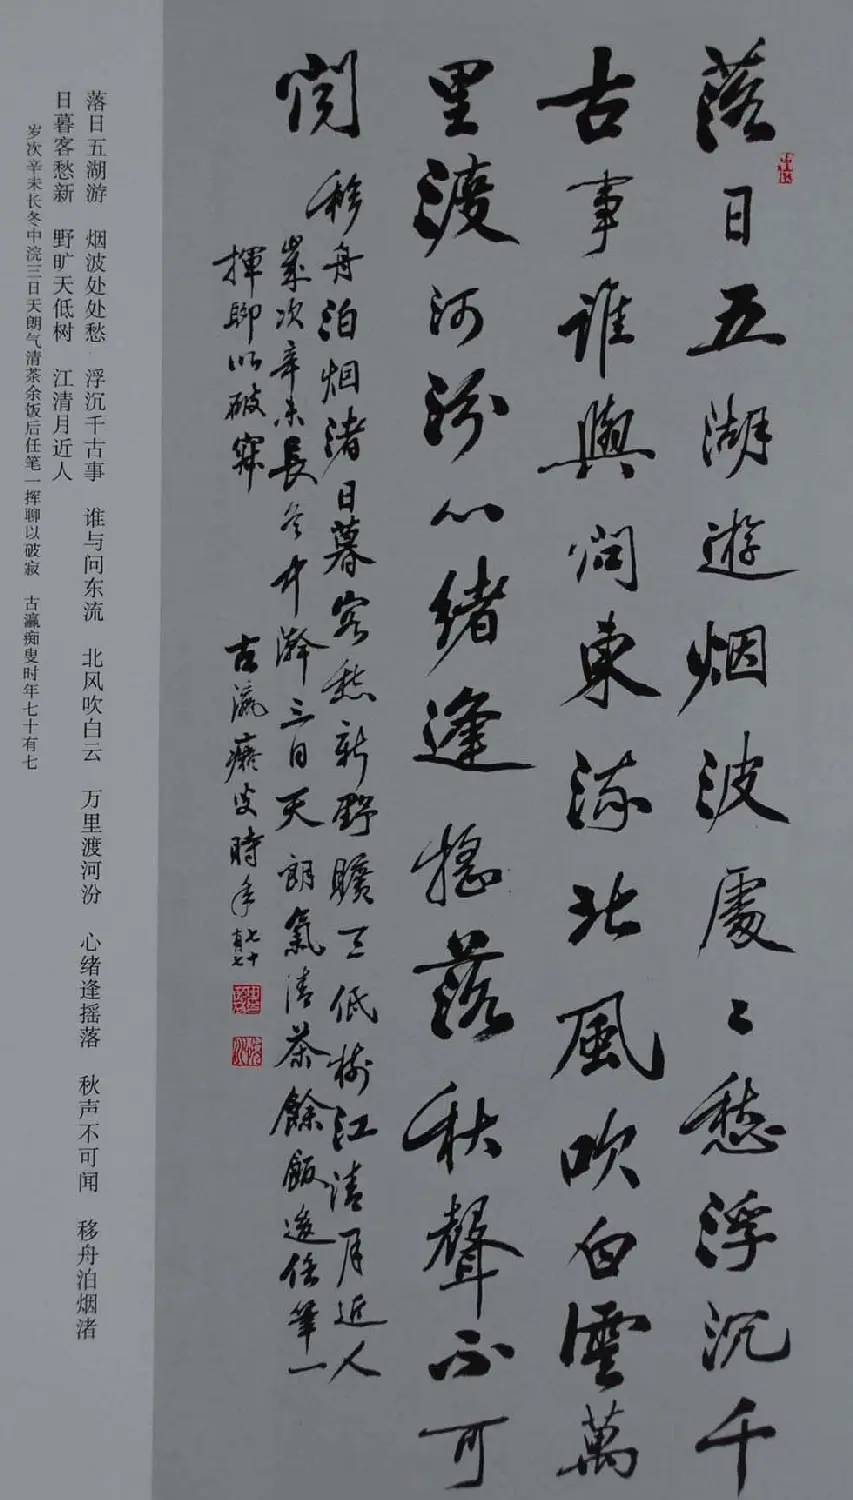 落日五湖遊烟波處〻愁浮沉千
古事誰與問東流北風吹白雲萬
里渡河汾心緒逢搖落秋聲不可
聞
移舟泊烟渚日暮客愁新野曠天低樹江清月近人
歲次辛未長冬中澣三日天朗氣清茶餘飯後任筆一
揮聊以破寂
古瀛癡叟時年七十有七
落日五湖游 烟波处处愁 浮沉千古事 谁与问东流 北风吹白云 万里渡河汾 心绪逢摇落 秋声不可闻 移舟泊烟渚
日暮客愁新 野旷天低树 江清月近人
岁次辛未长冬中浣三日天朗气清茶余饭后任笔一挥聊以破寂 古瀛痴叟时年七十有七